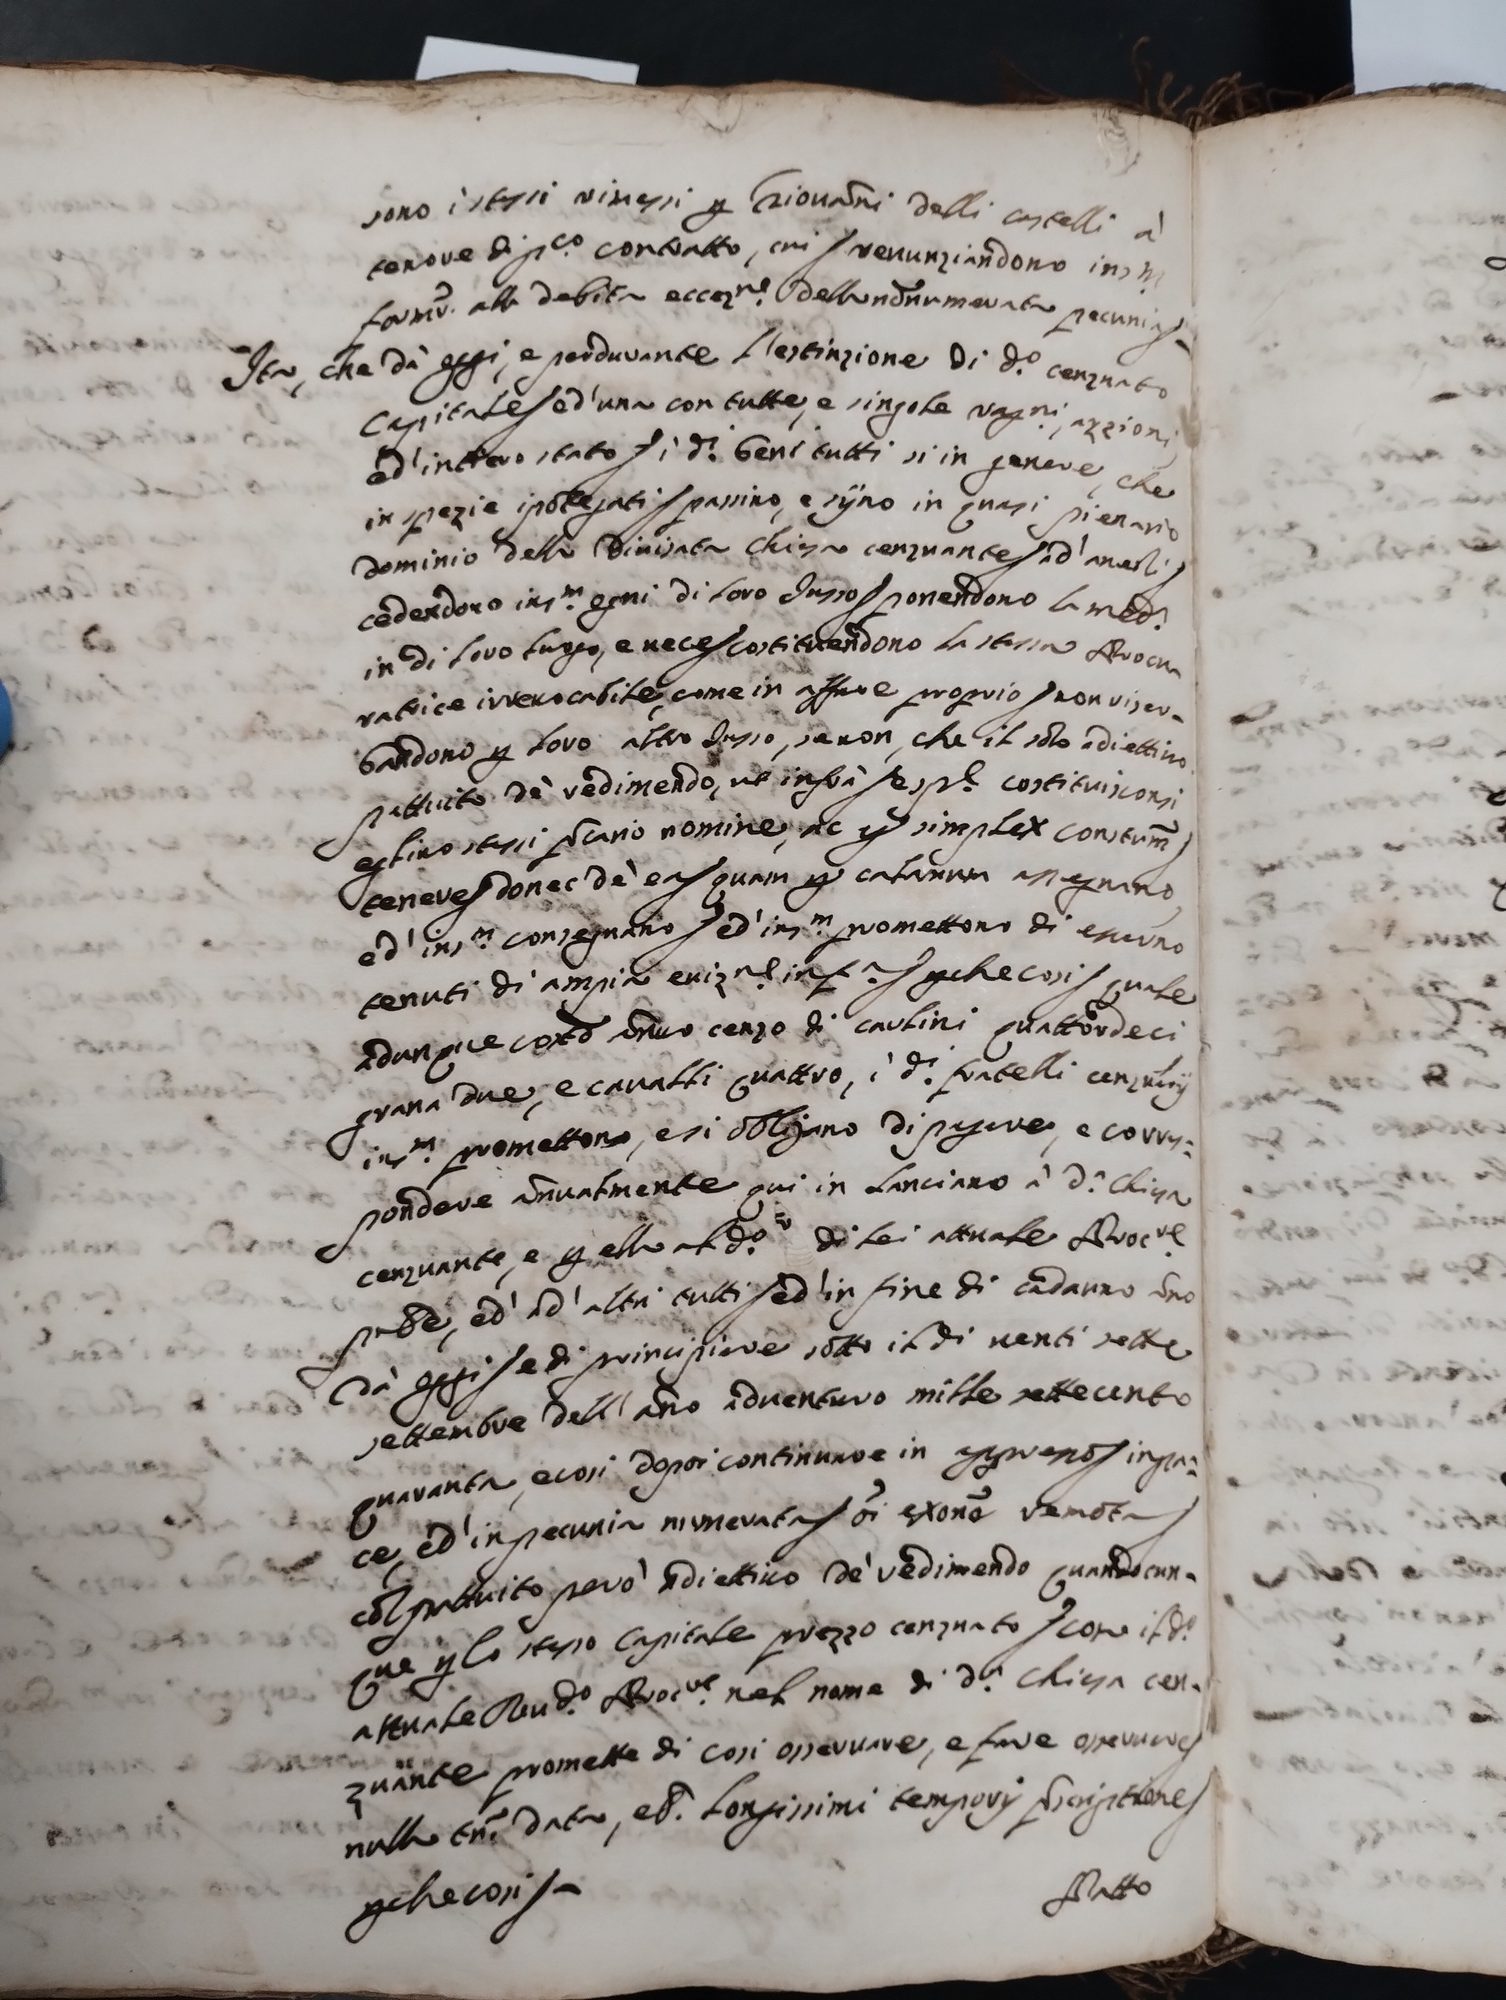 sono i stessi rimessi p Giovanni delli castelli à
tenore di pco. contratto, cui / renunziandono insm
formr. alla debita eccezne. della nonnumerata pecunia /
Ita, che dà oggi, e perdurante l'estinzione di do. cenzuato
Capitale / ed' una con tutte, e singole ragni., azzioni,
ed' intiero stato / i di. beni tutti si in genere, che
in spezie ipotegati / passino, e sijno in quasi pienario
dominio della divisata Chiesa cenzuante / ad' averli /
cedendono insm. ogni di loro Jusso / ponendono la meda.
in di loro luogo, e nece / costituendono la stessa Procu
ratrice irrevocabile, come in affare proprio / non riser-
bandono p loro altro Jusso, se non, che il solo adiettivo
pattuito de redimendo, ut infrà / e spl. costituisconsi
eglino stessi pcario nomine, ac p simplex constum /
tenere / donec de ea / quam p cataruum assegnano,
ed' insm. consegnano / ed' insm. promettono di esserno
tenuti di ampia evizne. in fa. / pche cosi / quale
adunque annuo cenzo di carlini quattordeci
grana due, e cavalli quattro, i di. fratelli cenzuarij
insm. promettono, e si obligano di pagare, e corris=
pondere annualmente qui in Lanciano à da. Chiesa
cenzuante, e p ella al do. di lei attuale Procre.
pnte, ed' ad' altri tutti / ed' in fine di cadauno anno
Dà oggi / e di principiare sotto il di venti sette
settembre dell' anno adventuro mille settecento
quaranta, e cosi dopoi continuare in appresso / in pa=
ce, ed' in pecunia numerata / oi exone remota /
col pattuito però adiettivo de redimendo quandocun-
que p lo stesso Capitale prezzo cenzuato / con il do.
attuale Revdo. Procre. nel nome di da. Chiesa cen-
zuante promette di cosi osservare, e fare osservare /
nulla tni. data, et. longissimi temporij pscriptione /
pche cosi /
Patto